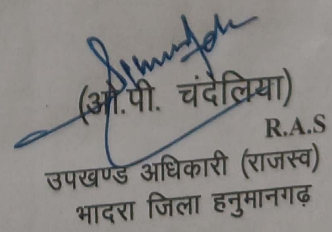 (ओ.पी. चंदेलिया)
R.A.S
उपखण्ड अधिकारी (राजस्व)
भादरा जिला हनुमानगढ़